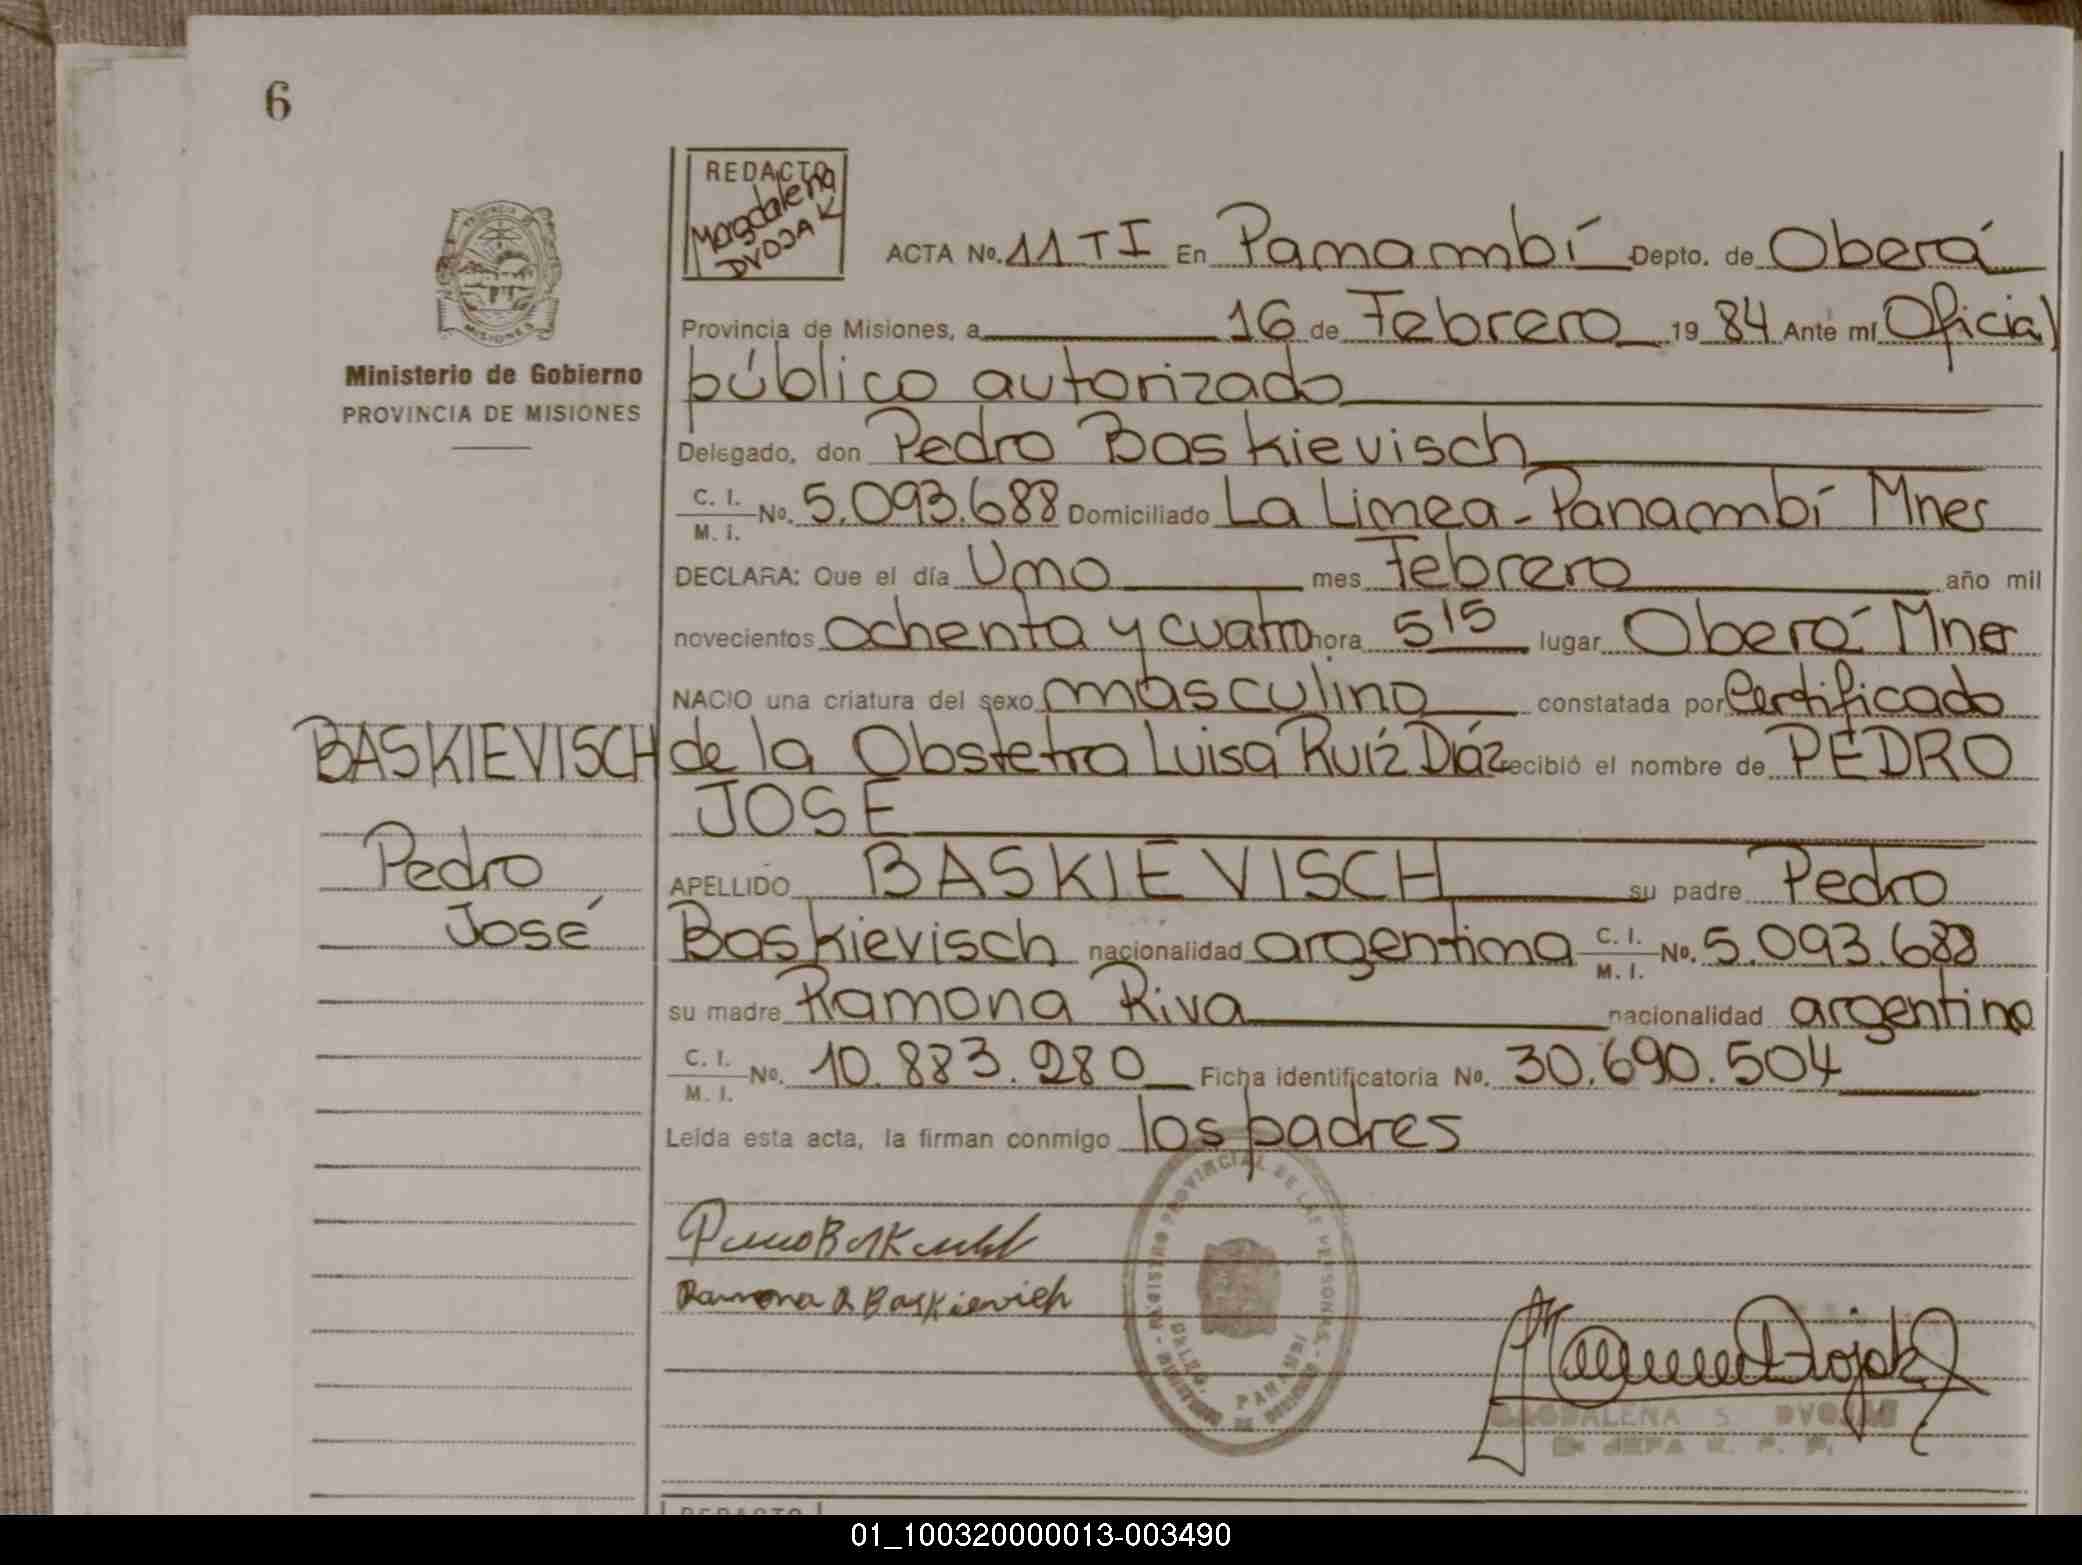 6
REDACTO
Magdalena
DVOJAK
ACTA No. 11 TI En Panambí Depto. de Oberá
Provincia de Misiones, a 16 de Febrero 19 84 Ante mí Oficial
público autorizado
Ministerio de Gobierno
PROVINCIA DE MISIONES
Delegado, don Pedro Baskievisch
C. I.
M. I. No. 5.093.688 Domiciliado La Linea - Panambí Mnes
DECLARA: Que el día Uno mes Febrero año mil
novecientos ochenta y cuatro hora 5 15 lugar Oberá Mnes
NACIO una criatura del sexo masculino constatada por Certificado
BASKIEVISCH
Pedro
José
de la Obstetra Luisa Ruíz Díaz recibió el nombre de PEDRO
JOSE
APELLIDO BASKIEVISCH su padre Pedro
Baskievisch nacionalidad argentina C. I.
M. I. No. 5.093.688
su madre Ramona Riva nacionalidad argentina
C. I.
M. I. No. 10.883.280 Ficha identificatoria No. 30.690.504
Leída esta acta, la firman conmigo los padres
REGISTRO PROVINCIAL DE LAS PERSONAS
PANAMBI
Ramona R Baskievich
MAGDALENA S. DVOJAK
JEFA R. P. P.
REDACTO
01_100320000013-003490